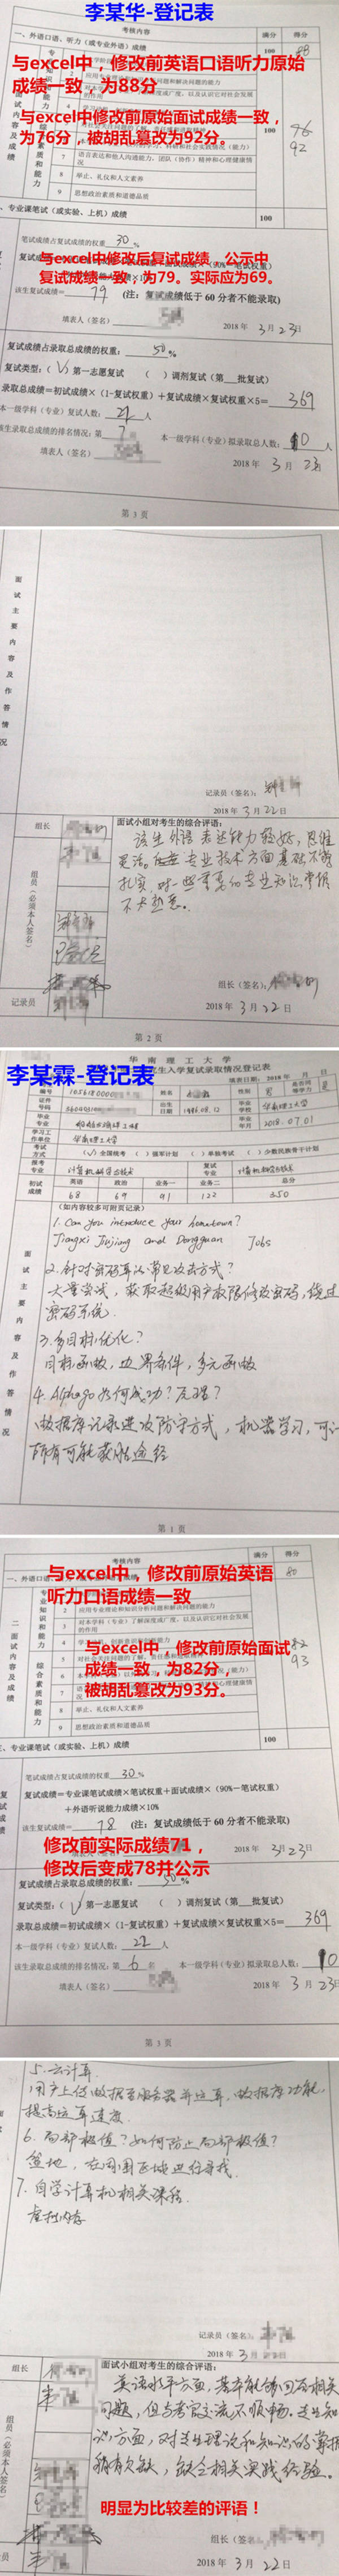 李某华-登记表
考核内容
满分
得分
一、外语口语、听力(或专业外语)成绩
100
88
与excel中,修改前英语口语听力原始
成绩一致,为88分
与excel中修改前原始面试成绩一致,
为76分,被胡乱篡改为92分。
92
7
语言表达和他人沟通能力、团队(协作)精神和心理健康情况
8
举止、礼仪和人文素养
9
思想政治素质和道德品质
、专业课笔试(或实验、上机)成绩
100
笔试成绩占复试成绩的权重 30 %
与excel中修改后复试成绩、公示中
复试成绩一致,为79。实际应为69。
该生复试成绩= 79 (注:复试成绩低于60分者不能录取)
填表人(签名)
2018年 3月23日
复试成绩占录取总成绩的权重: 50 %
复试类型:(√)第一志愿复试 ( )调剂复试(第 批复试)
录取总成绩=初试成绩×(1-复试权重)+复试成绩×复试权重×5= 369
本一级学科(专业)复试人数: 21 人
该生录取总成绩的排名情况:第 7
本一级学科(专业)拟录取总人数: 10 人
填表人(签名)
2018年 3月 23日
第 3 页
面试主要内容及作答情况
记录员(签名):
2018年3月22日
组长
面试小组对考生的综合评语:
该生外语表达能力较好,思维
灵活。专业技术方面基础不够
扎实,对一些重要的专业知识掌握
不太熟悉。
组员(必须本人签名)
组长(签名):
记录员
2018年 3月 22日
第 2 页
华南理工大学
李某霖-登记表
生入学复试录取情况登记表
填表日期:2018年 月 日
编号
姓名
性别
男
证件号码
出生日期
1986.08.12
毕业学校
华南理工大学
毕业专业
毕业年月
2018.07.01
学习工作单位
华南理工大学
考试方式
(√)全国统考 ( )强军计划 ( )单独考试 ( )少数民族骨干计划
报考专业
计算机科学与技术
复试专业
计算机科学与技术
初试成绩
英语
政治
业务一
业务二
总分
68
69
91
122
350
(如内容较多可附页记录)
1. Can you introduce your hometown?
Jiangxi Jiujiang and Dongguan Jobs
2. 针对密码算法常见攻击方式?
大量尝试,获取超级用户权限修改密码,绕过
密码系统.
3. 多目标优化?
目标函数,边界条件,多元函数
4. Alphago为何成功?
数据库记录进攻防守方式,机器学习,可计
所有可能获胜途径
面试主要内容及作答情况
第 1 页
考核内容
满分
得分
一、外语口语
80
与excel中,修改前原始英语
听力口语成绩一致
二 面试内容及成绩
专业知识和能力
综合素质和能力
2
应用专业理论和知识分析问题和解决问题的能力
3
对本学科(专业)了解深度或广度,以及认识它对社会发展的作用
与excel中,修改前原始面试
成绩一致,为82分,
被胡乱篡改为93分。
82
93
8
举止、礼仪和人文素养
9
思想政治素质和道德品质
三、专业课笔试(或实验、上机)成绩
100
笔试成绩占复试成绩的权重 30 %
复试成绩=专业课笔试成绩×笔试权重+面试成绩×(90%-笔试权重)
+外语听说能力成绩×10%
该生复试成绩= 78 (注:复试成绩低于60分者不能录取)
修改前实际成绩71,
修改后变成78并公示
2018年 3月23日
复试成绩占录取总成绩的权重: 50 %
复试类型:(√)第一志愿复试 ( )调剂复试(第 批复试)
录取总成绩=初试成绩×(1-复试权重)+复试成绩×复试权重×5= 369
本一级学科(专业)复试人数: 21 人
该生录取总成绩的排名情况:第 6 名
本一级学科(专业)拟录取总人数: 10
填表人(签名)
2018年 3月 23日
第 3 页
5. 云计算.
用户上传数据至服务器并运算,数据库功能,
提高运算速度.
6. 局部极值?如何防止局部极值?
盆地,在周围区域进行寻找.
7. 自学计算机相关课程.
虚拟内存
记录员(签名):
2018年 3月 22日
组长
面试小组对考生的综合评语:
英语水平方面,基本能够回答相关
问题,但与考官交流不顺畅。专业知
识方面,对专业理论和知识的掌握
稍有欠缺,缺乏相关实践经验。
组员(必须本人签名)
明显为比较差的评语!
组长(签名):
记录员
2018年 3月 22日